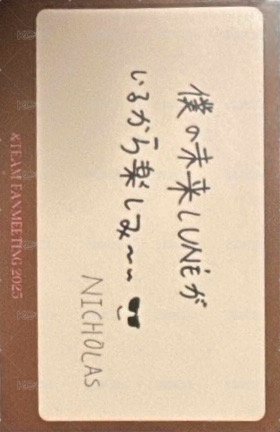 僕の未来LUNÉが
いるから楽しみ〜〜
NICHOLAS
&TEAM FANMEETING 2025